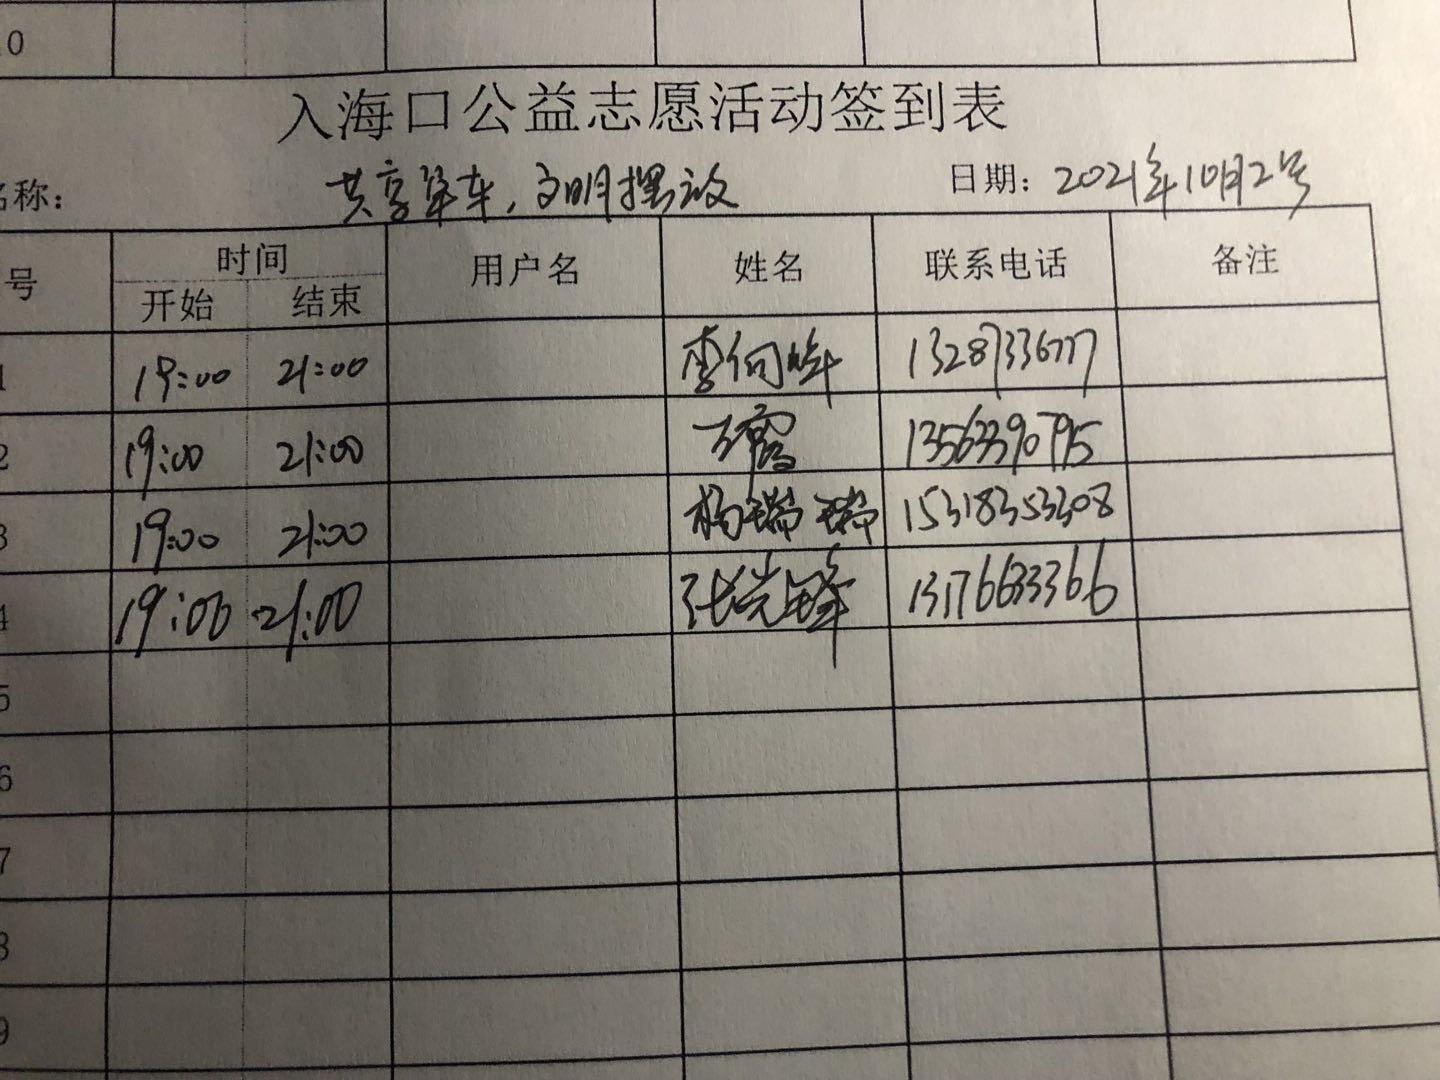 10
入海口公益志愿活动签到表
名称： 共享单车，文明摆放 日期：2021年10月2号
号 时间 用户名 姓名 联系电话 备注
开始 结束
1 19:00 21:00 13287336777
2 19:00 21:00 王霞 13563390795
3 19:00 21:00 杨瑞瑞 15318353308
4 19:00 21:00 13176683366
5
6
7
8
9